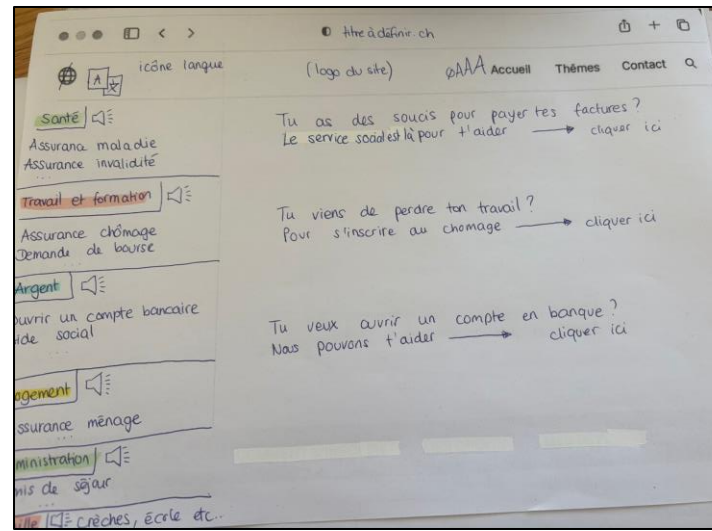 titre à définir.ch
icône langue
(logo du site)
AAA Accueil Thêmes Contact
Santé
Assurance maladie
Assurance invalidité
Travail et formation
Assurance chômage
Demande de bourse
Argent
ouvrir un compte bancaire
ide social
ogement
ssurance ménage
ministration
mis de séjour
ille crèches, école etc..
Tu as des soucis pour payer tes factures ?
Le service social est là pour t'aider → cliquer ici
Tu viens de perdre ton travail ?
Pour s'inscrire au chomage → cliquer ici
Tu veux ouvrir un compte en banque ?
Nous pouvons t'aider → cliquer ici